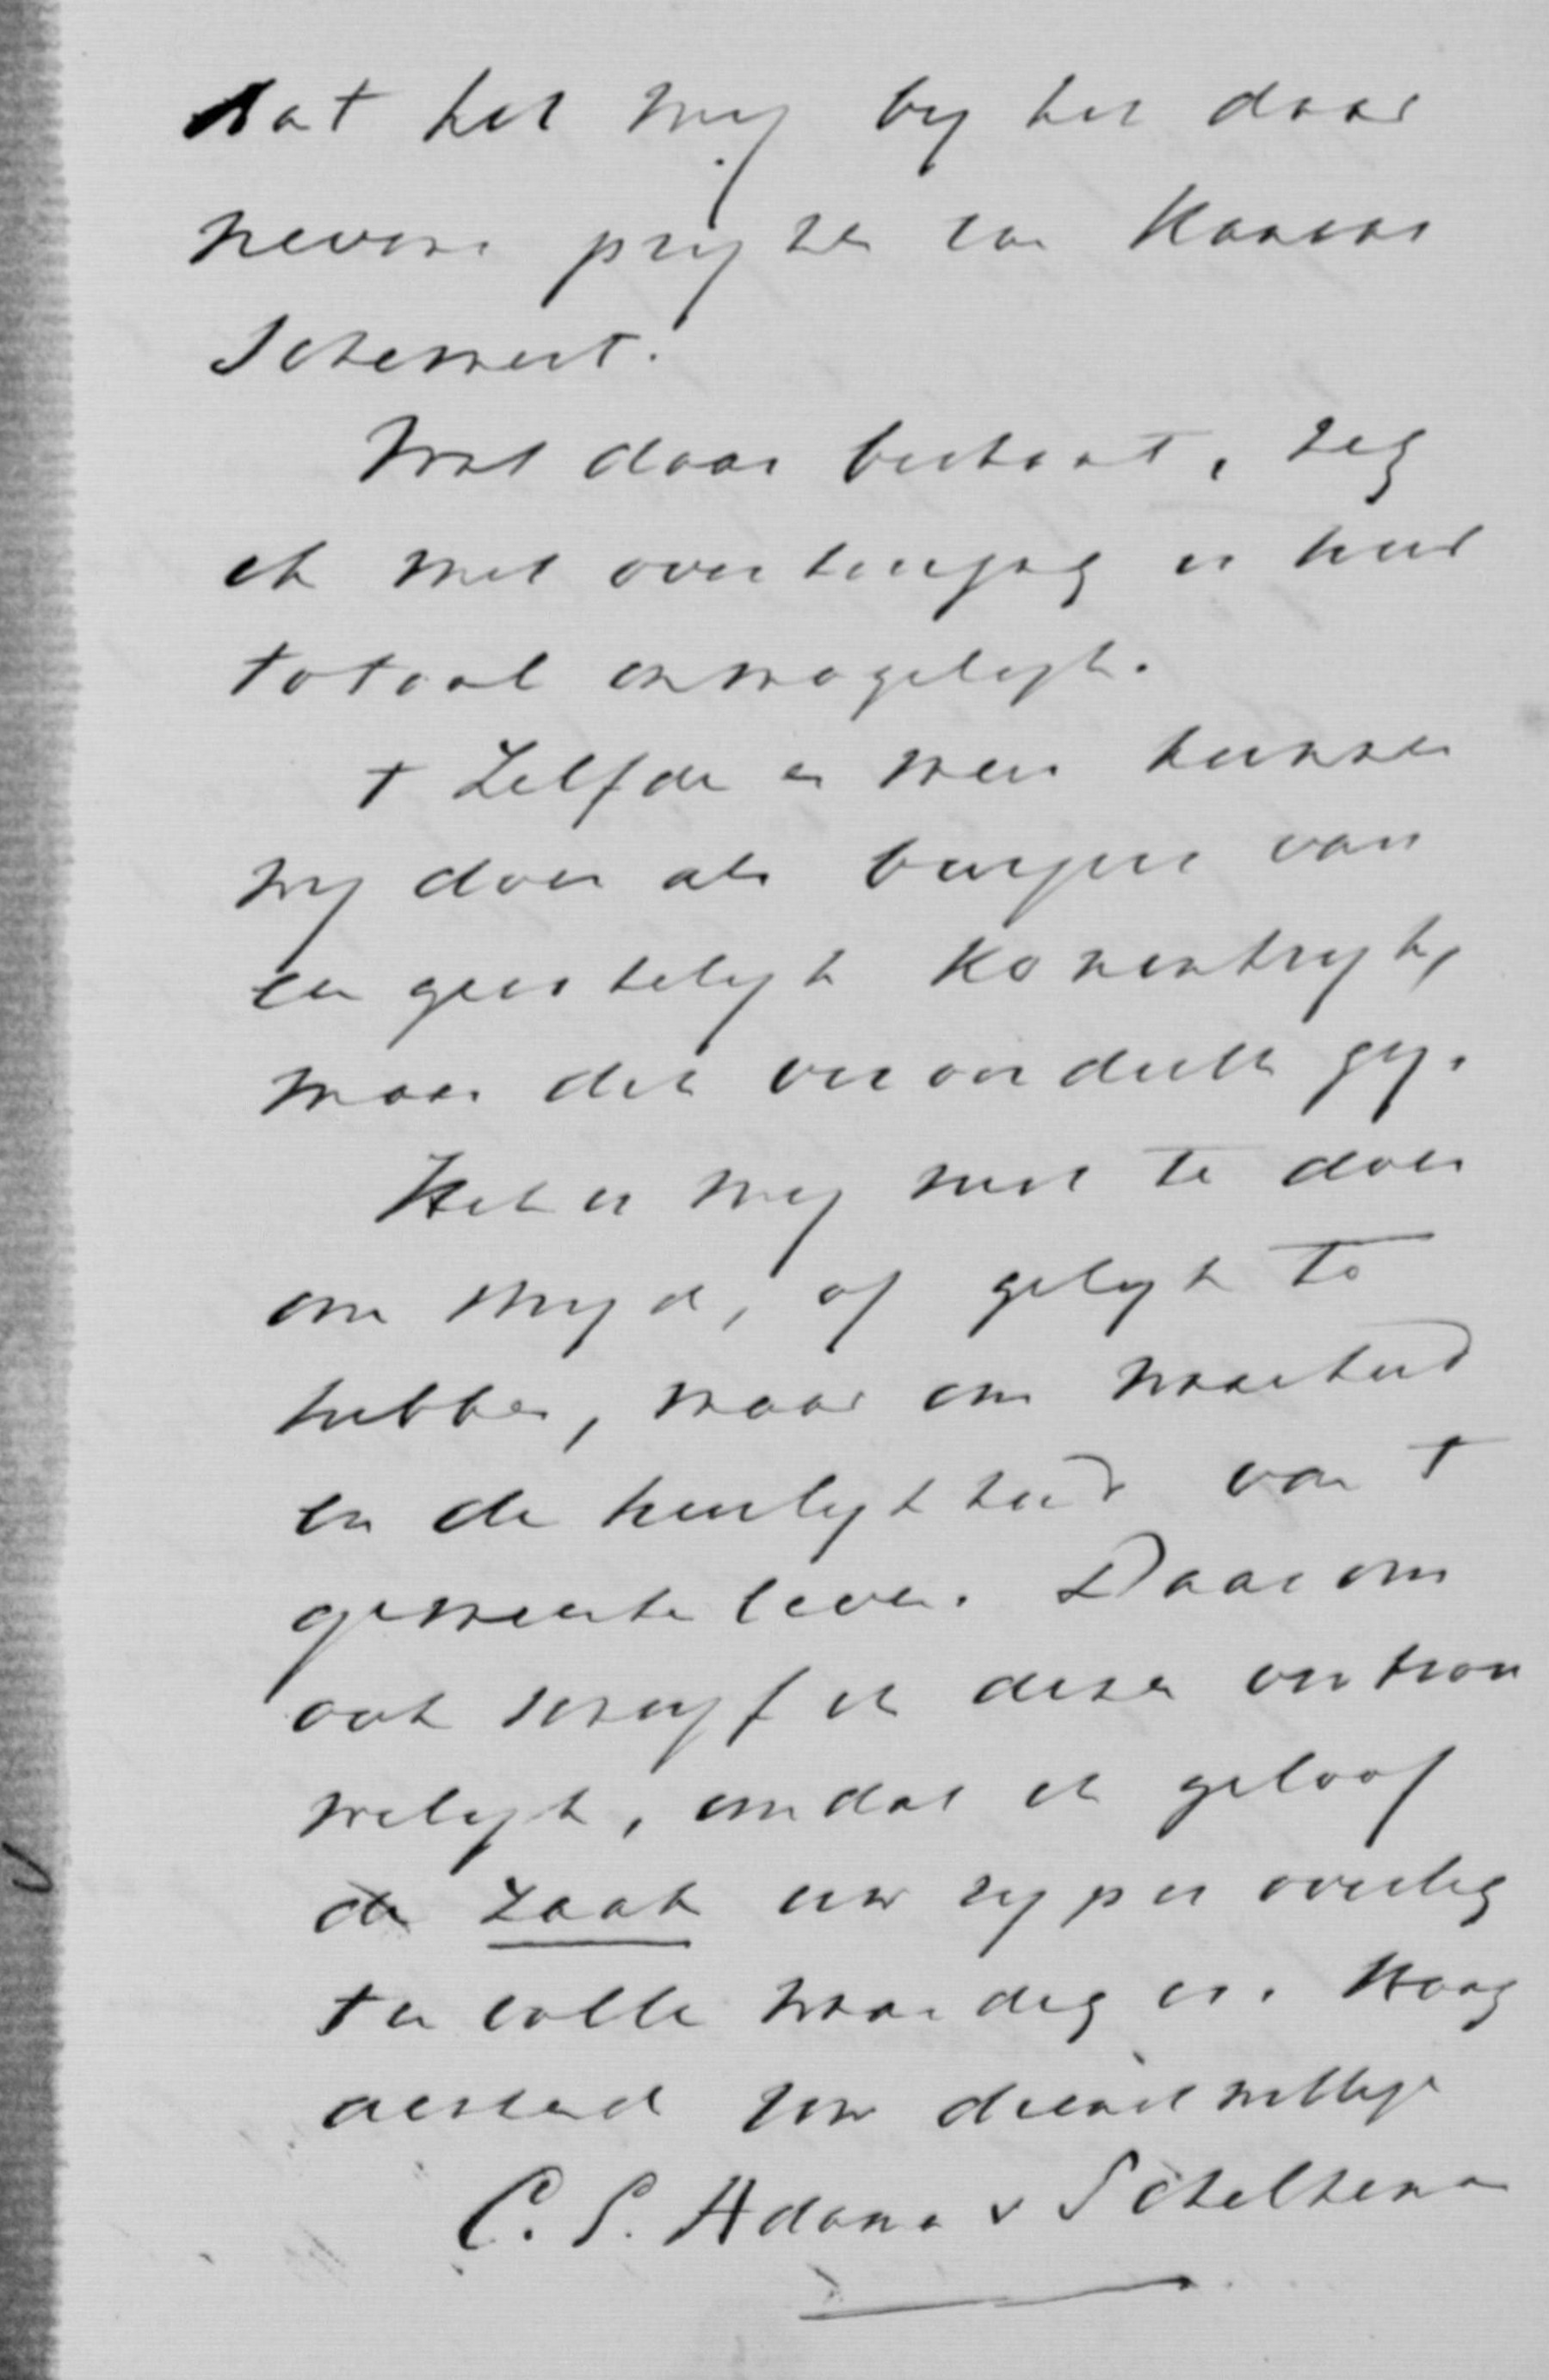 dat het my by het daar
nevens pryzen van
schemert.
Wat daar bestaat, zeg
ik met overtuiging is hier
totaal onmogelyk.
t Zelfde en meer kunnen
wy doen als burgers van
een geestelyk Koninkryk,
maar dit veroordeelt gy.
Het is my niet te doen
om stryd, of gelyk te
hebben, maar om waarheid
en de heerlykheid van t
gemeente leven. Daarom
ook schryf ik deze vertrou
welyk, omdat ik geloof
de zaak uw ryper overleg
ten volle waardig is. Hoog
achtend Uw dienstwillige
C. S. Adama v Scheltema